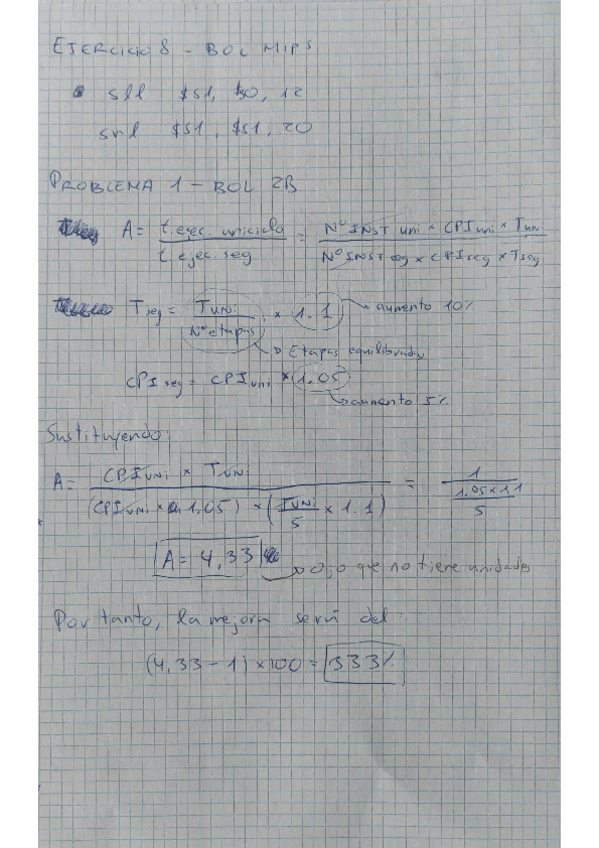 EJERCICIO 8 - BOL MIPS
sll $s1, $0, 12
srl $s1, $s1, 20
PROBLEMA 1 - BOL 2B
A = t.ejec. uniciclo / t.ejec. seg = Nº INST uni × CPI uni × T uni / Nº INST seg × CPI seg × T seg
T seg = T uni / Nº etapas × 1.1 → aumento 10%
→ Etapas equilibradas
CPI seg = CPI uni × 1.05
→ aumento 5%
Sustituyendo:
A = CPI uni × T uni / (CPI uni × 1.05) × (T uni / 5 × 1.1) = 1 / (1.05 × 1.1 / 5)
A = 4,33 → Ojo que no tiene unidades
Por tanto, la mejora será del
(4,33 - 1) × 100 = 333%